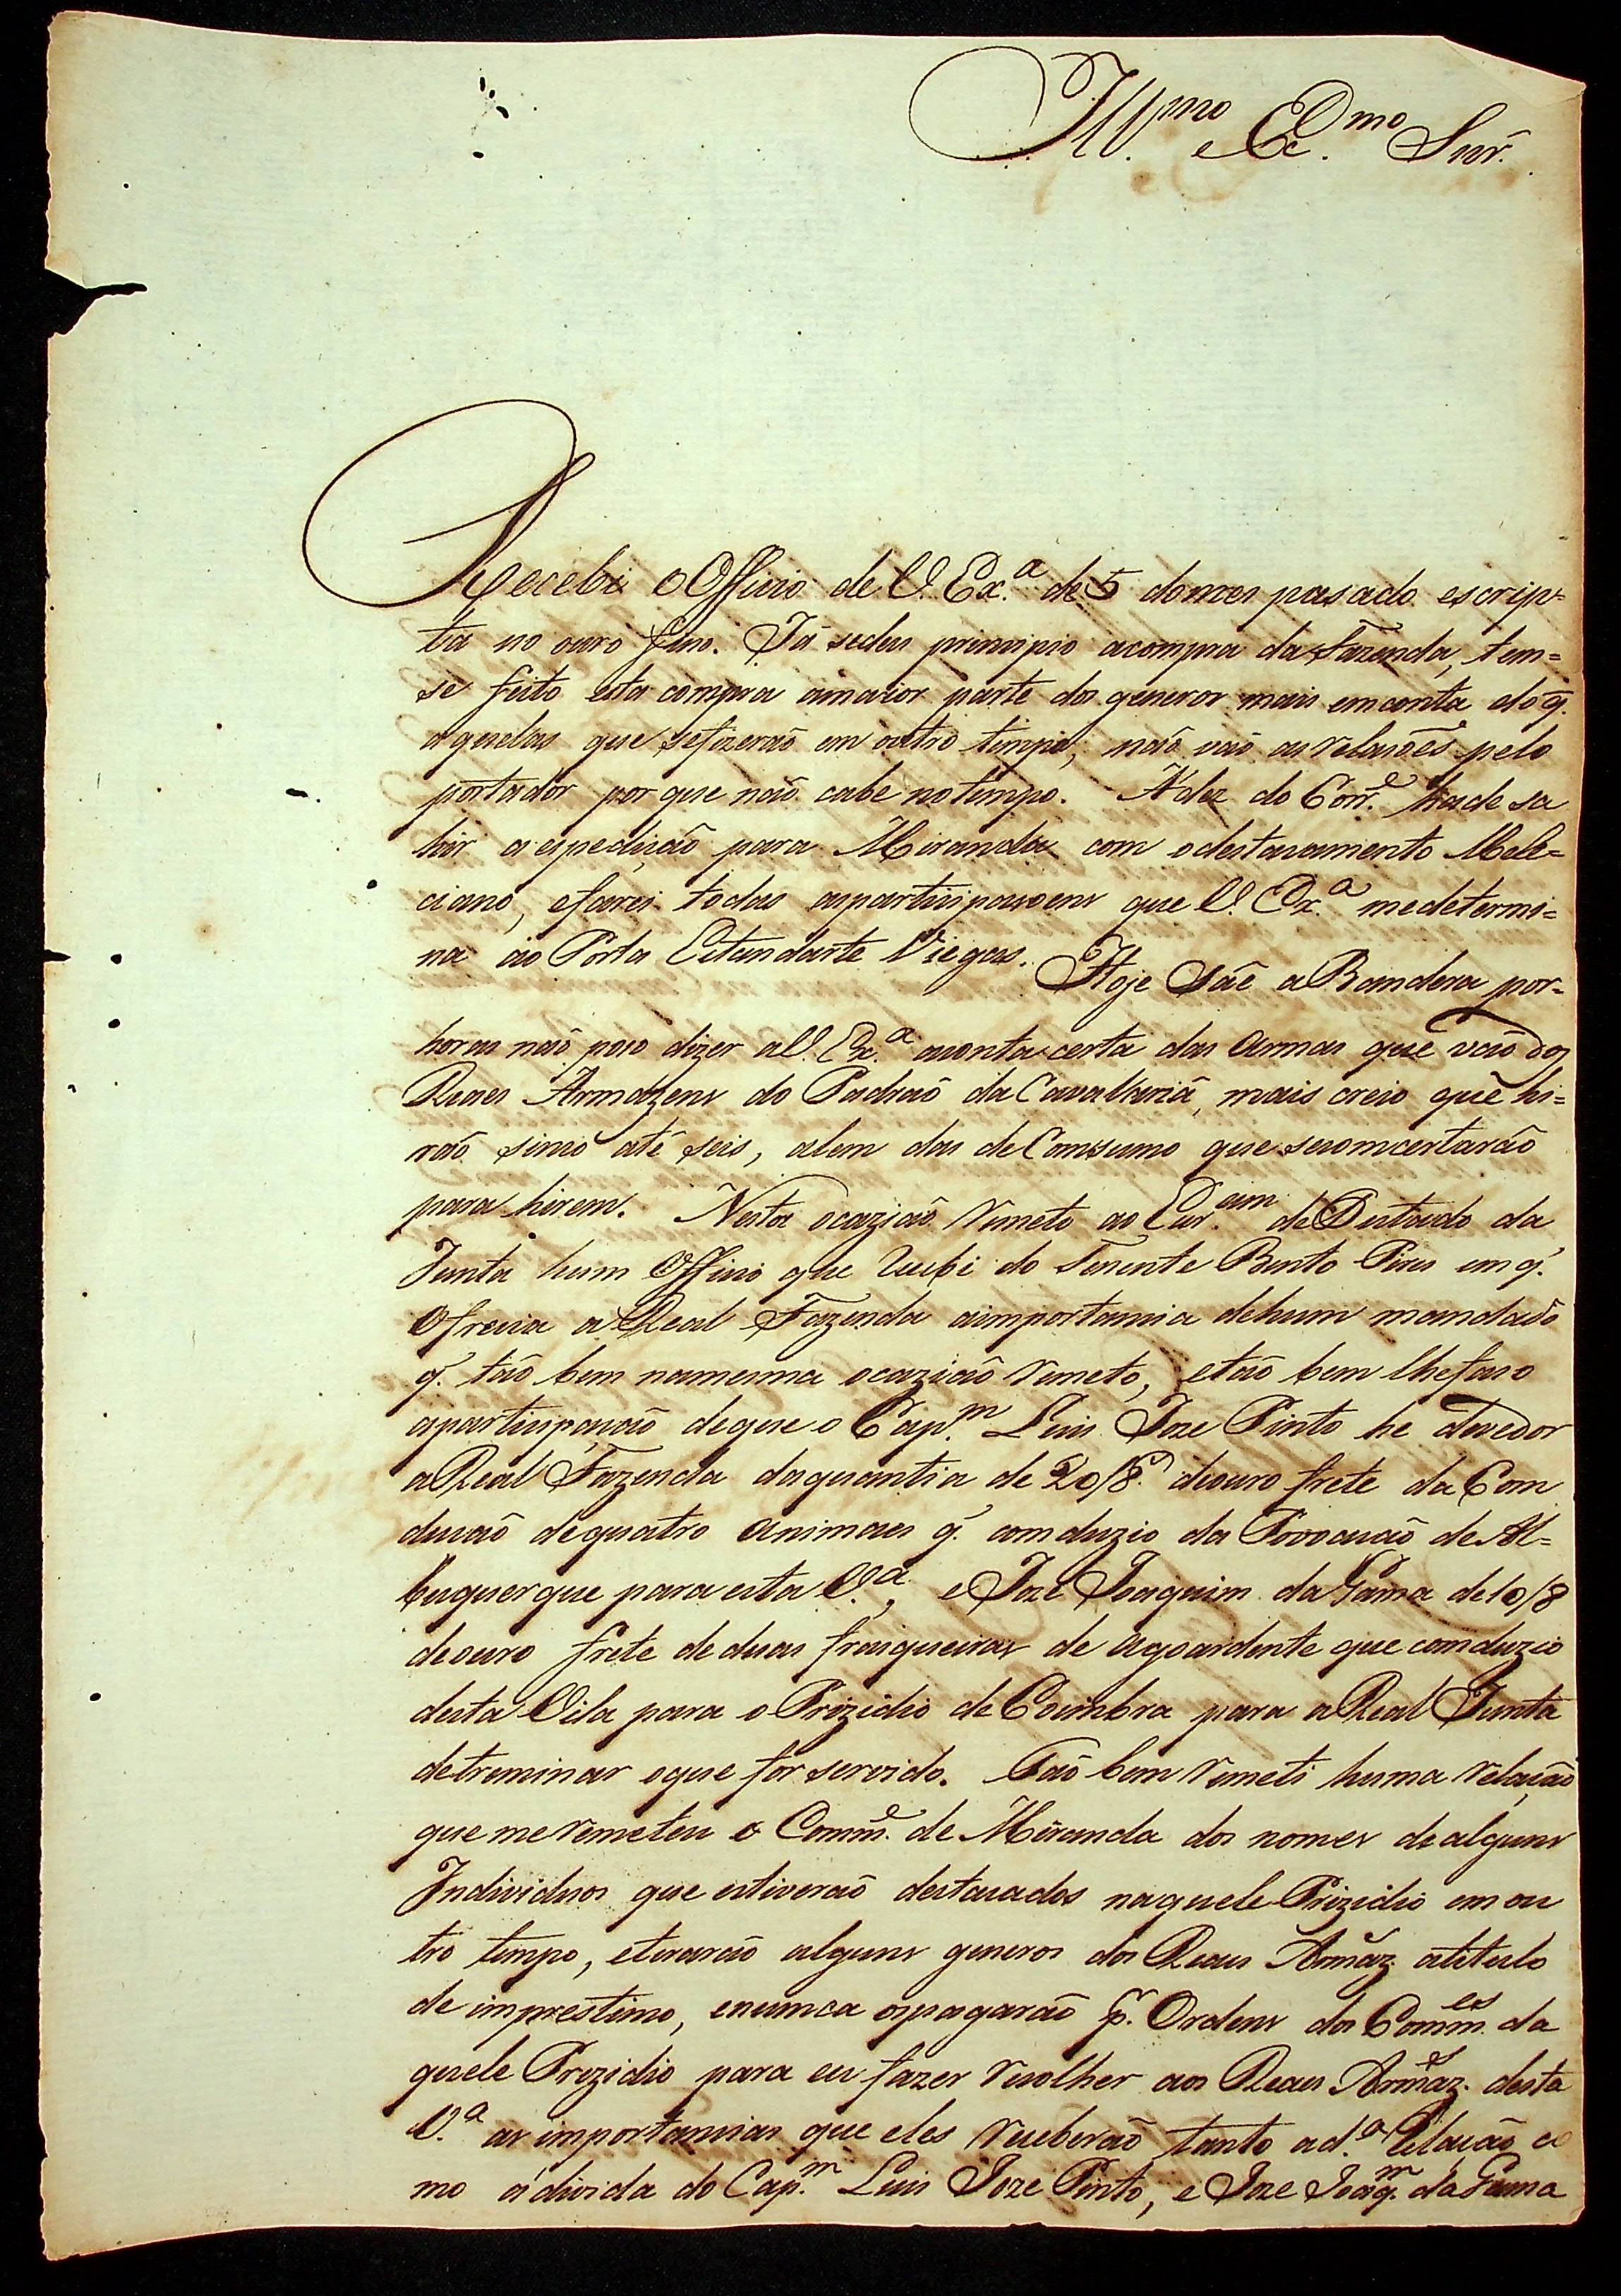 Ill.mo e Ex.mo Snr.
Recebi o Officio de V. Ex.a de 5 do mes pasado escrip=
ta no ouro fino. Já sedeu principio acompra da Fazenda, tem=
se feito esta compra amaior parte dos generos mais emconta do q.
aquelas que sefizeraõ em outro tempo, naõ vaõ as relasoẽs pelo
portador por que naõ cabe notempo. A dez do Corr.e hade sa
hir a espediçaõ para Miranda com odestacamento Mele=
ciano, efarei todas aspartiipasoens que V. Ex.a medetermi=
na ao Porta Estandarte Viegas. Hoje Sáe aBandera por=
horas naõ poso dizer aV. Ex.a aconta certa das Armas que vaõ dos
Reaes Armazens do Padraõ da Cavallariã, mais creio que hi=
raõ sinco até seis, alem das de Comsumo que secomcertaraõ
para hirem. Nesta ocaziaõ Remeto ao Escr.am deDestado da
Junta hum Officio que Recebi do Tenente Bento Pires em q.
Ofrecia a Real Fazenda aimportancia dehum mandado
q. taõ bem namesma ocaziaõ Remeto, etaõ bem lhefaso
apartisipacaõ deque o Cap.m Luis Joze Pinto he devedor
aReal Fazenda daquantia de 20/8.s deouro frete da Com
ducaõ dequatro animaes q. comduzio da Povoacaõ de Al=
buquerque para esta V.a, e Joze Joaquim da Gama de 10/8
deouro frete de duas frasqueiras de agoardente que comduzio
desta Vila para o Prezidio de Coimbra para a Real Junta
detreminar oque for servido. Taõ bem Remeti huma Relaçaõ
que me Remeteu o Comm.e de Miranda dos nomes de alguns
Individuos que estiveraõ destacados naquele Prizidio em ou
tro tempo, etiraraõ alguns generos dos Reaes Armaz.s atitulo
de imprestimo, enunca ospagaraõ p.r Ordens dos Comm.es da
quele Prezidio para eu fazer Recolher aos Reaes Armaz.s desta
V.a as importancias que eles Receberaõ tanto ad.a Relaçaõ co
mo a divida do Cap.m Luis Joze Pinto, e Joze Joaq.m da Gama